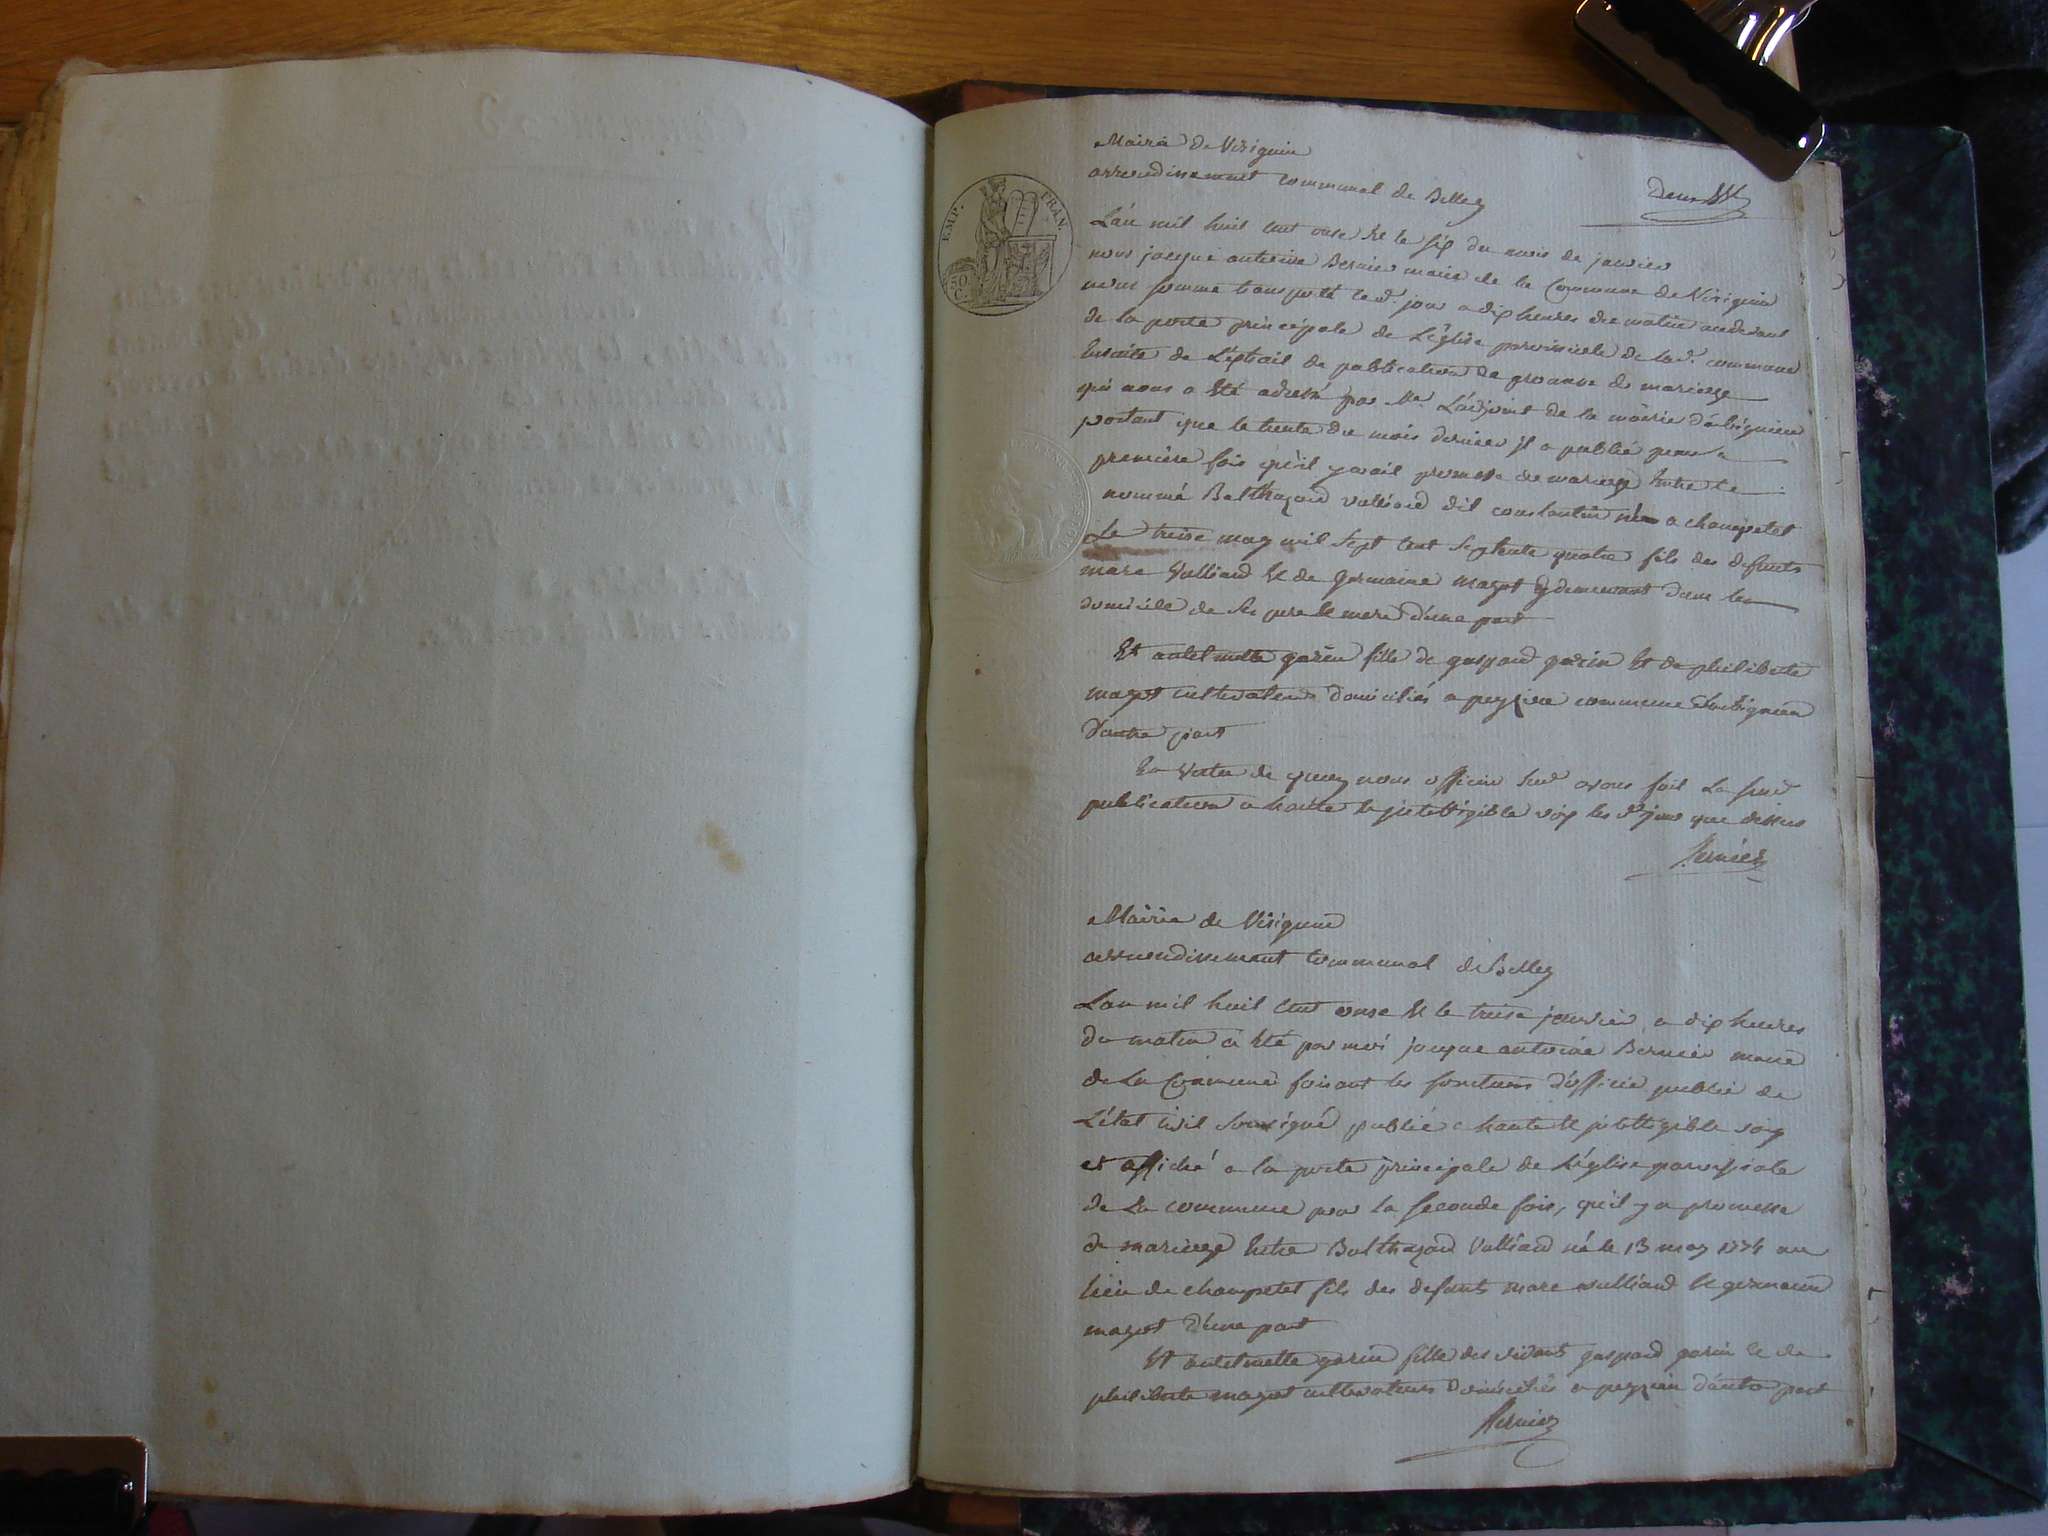 Mairie de Virignin
arrondissement communal de Belley
Deux
EMP. FRAN.
50 C.
L'an mil huit cent onze et le six du mois de janvier
nous jacque antoine Bernier maire de la Commune de Virignin
nous somme transporté ced. jour a dix heures du matin audevant
de la porte principale de L'église paroissiale de lad. commune
Ensuite de L'extrait de publication de promesse de mariage
qui nous a été adressé par Mr. L'adjoint de la mairie d'arbignieu
portant que le trente du mois dernier il a publié pour la
première fois qu'il y avait promesse de mariage Entre le
nommé Balthazard vulliard dit constantin né a champetel
Le treize may mil sept cent septente quatre fils des defunts
marc vulliard et de germaine mazot demeurant dans le
domicile de ses pere et mere d'une part
Et antelmette garin fille de gaspard garin Et de philiberte
mazot cultivateurs domiciliés a peyzieu commune d'arbignieu
d'autre part
En vertu de quoy nous officier sud avons fait La susd
publication a haute et jntelligible voix les d. jour que dessus
Bernier
Mairie de Virignin
arrondissement communal de Belley
L'an mil huit cent onze et le treize janvier, a dix heures
du matin a été par moi jacque antoine Bernier maire
de La Commune faisant les fonctions d'officier public de
L'état civil soussigné publié a haute et jntelligible voix
et affiché a la porte principale de L'église paroissiale
de La commune pour la seconde fois, qu'il y a promesse
de mariage Entre Balthazard Vulliard né le 13 may 1774 au
lieu de champetel fils des defunts marc vulliard et germaine
mazot d'une part
Et antelmette garin fille des vivants gaspard garin et de
philiberte mazot cultivateurs domiciliés a peyzieu d'autre part
Bernier